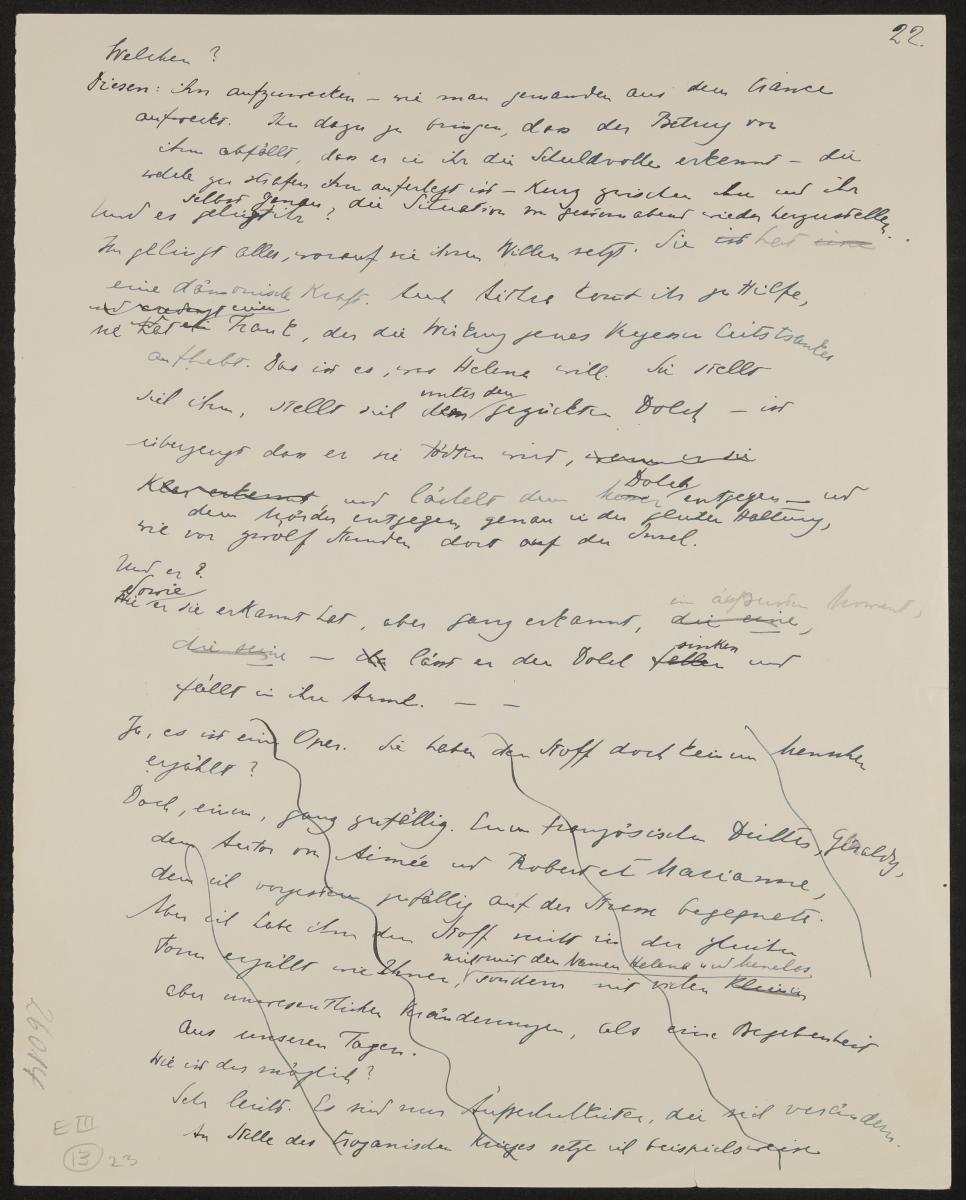 22.
Welchen?
Diesen: ihn aufzuwecken – wie man jemanden aus dem Trance
aufweckt. Ihn dazu zu bringen, dass der Betrug von
ihm abfällt, dass er in ihr die Schuldvolle erkennt – die
welche zu strafen ihm auferlegt ist – Kurz zwischen ihm und ihr
selbst genau, die Situation von gestern abend wieder herzustellen.
Und es gelingt ihr?
Ihr gelingt alles, worauf sie ihren Willen setzt. Sie ist hat eine
eine dämonische Kraft. Auch Aithra kommt ihr zu Hilfe,
und credenzt einen
sie hat ein Trank, der die Wirkung jenes Vergessenheitstrankes
aufhebt. Das ist es, was Helena will. Sie stellt
sich ihm, stellt sich dem unter den gezückten Dolch – ist
überzeugt dass er sie tödten wird, wenn er sie
klar erkennt und lächelt dem Dolch entgegen – und
dem Mörder entgegen, genau in der gleichen Haltung,
wie vor zwölf Stunden dort auf der Insel.
Und er?
Sowie
Wie er sie erkannt hat, aber ganz erkannt, die eine, im äussersten Moment,
die seine – da lässt er den Dolch fallen sinken und
fällt in ihre Arme. – –
Ja, es ist eine Oper. Sie haben den Stoff doch keinem Menschen
erzählt?
Doch, einem, ganz zufällig. Einem französischen Dichter, Géraldy,
dem Autor von Aimée und Robert et Marianne,
dem ich vorgestern zufällig auf der Strasse begegnete.
Aber ich habe ihm den Stoff nicht in der gleichen
nicht mit den Namen Helena und Menelas
Form erzählt wie Ihnen, sondern mit vielen kleinen
aber unwesentlichen Veränderungen, als eine Begebenheit
aus unseren Tagen.
Wie ist das möglich?
Sehr leicht. Es sind nur Äusserlichkeiten, die sich verändern.
An Stelle des trojanischen Krieges setze ich beispielsweise
26014
E III
13 23